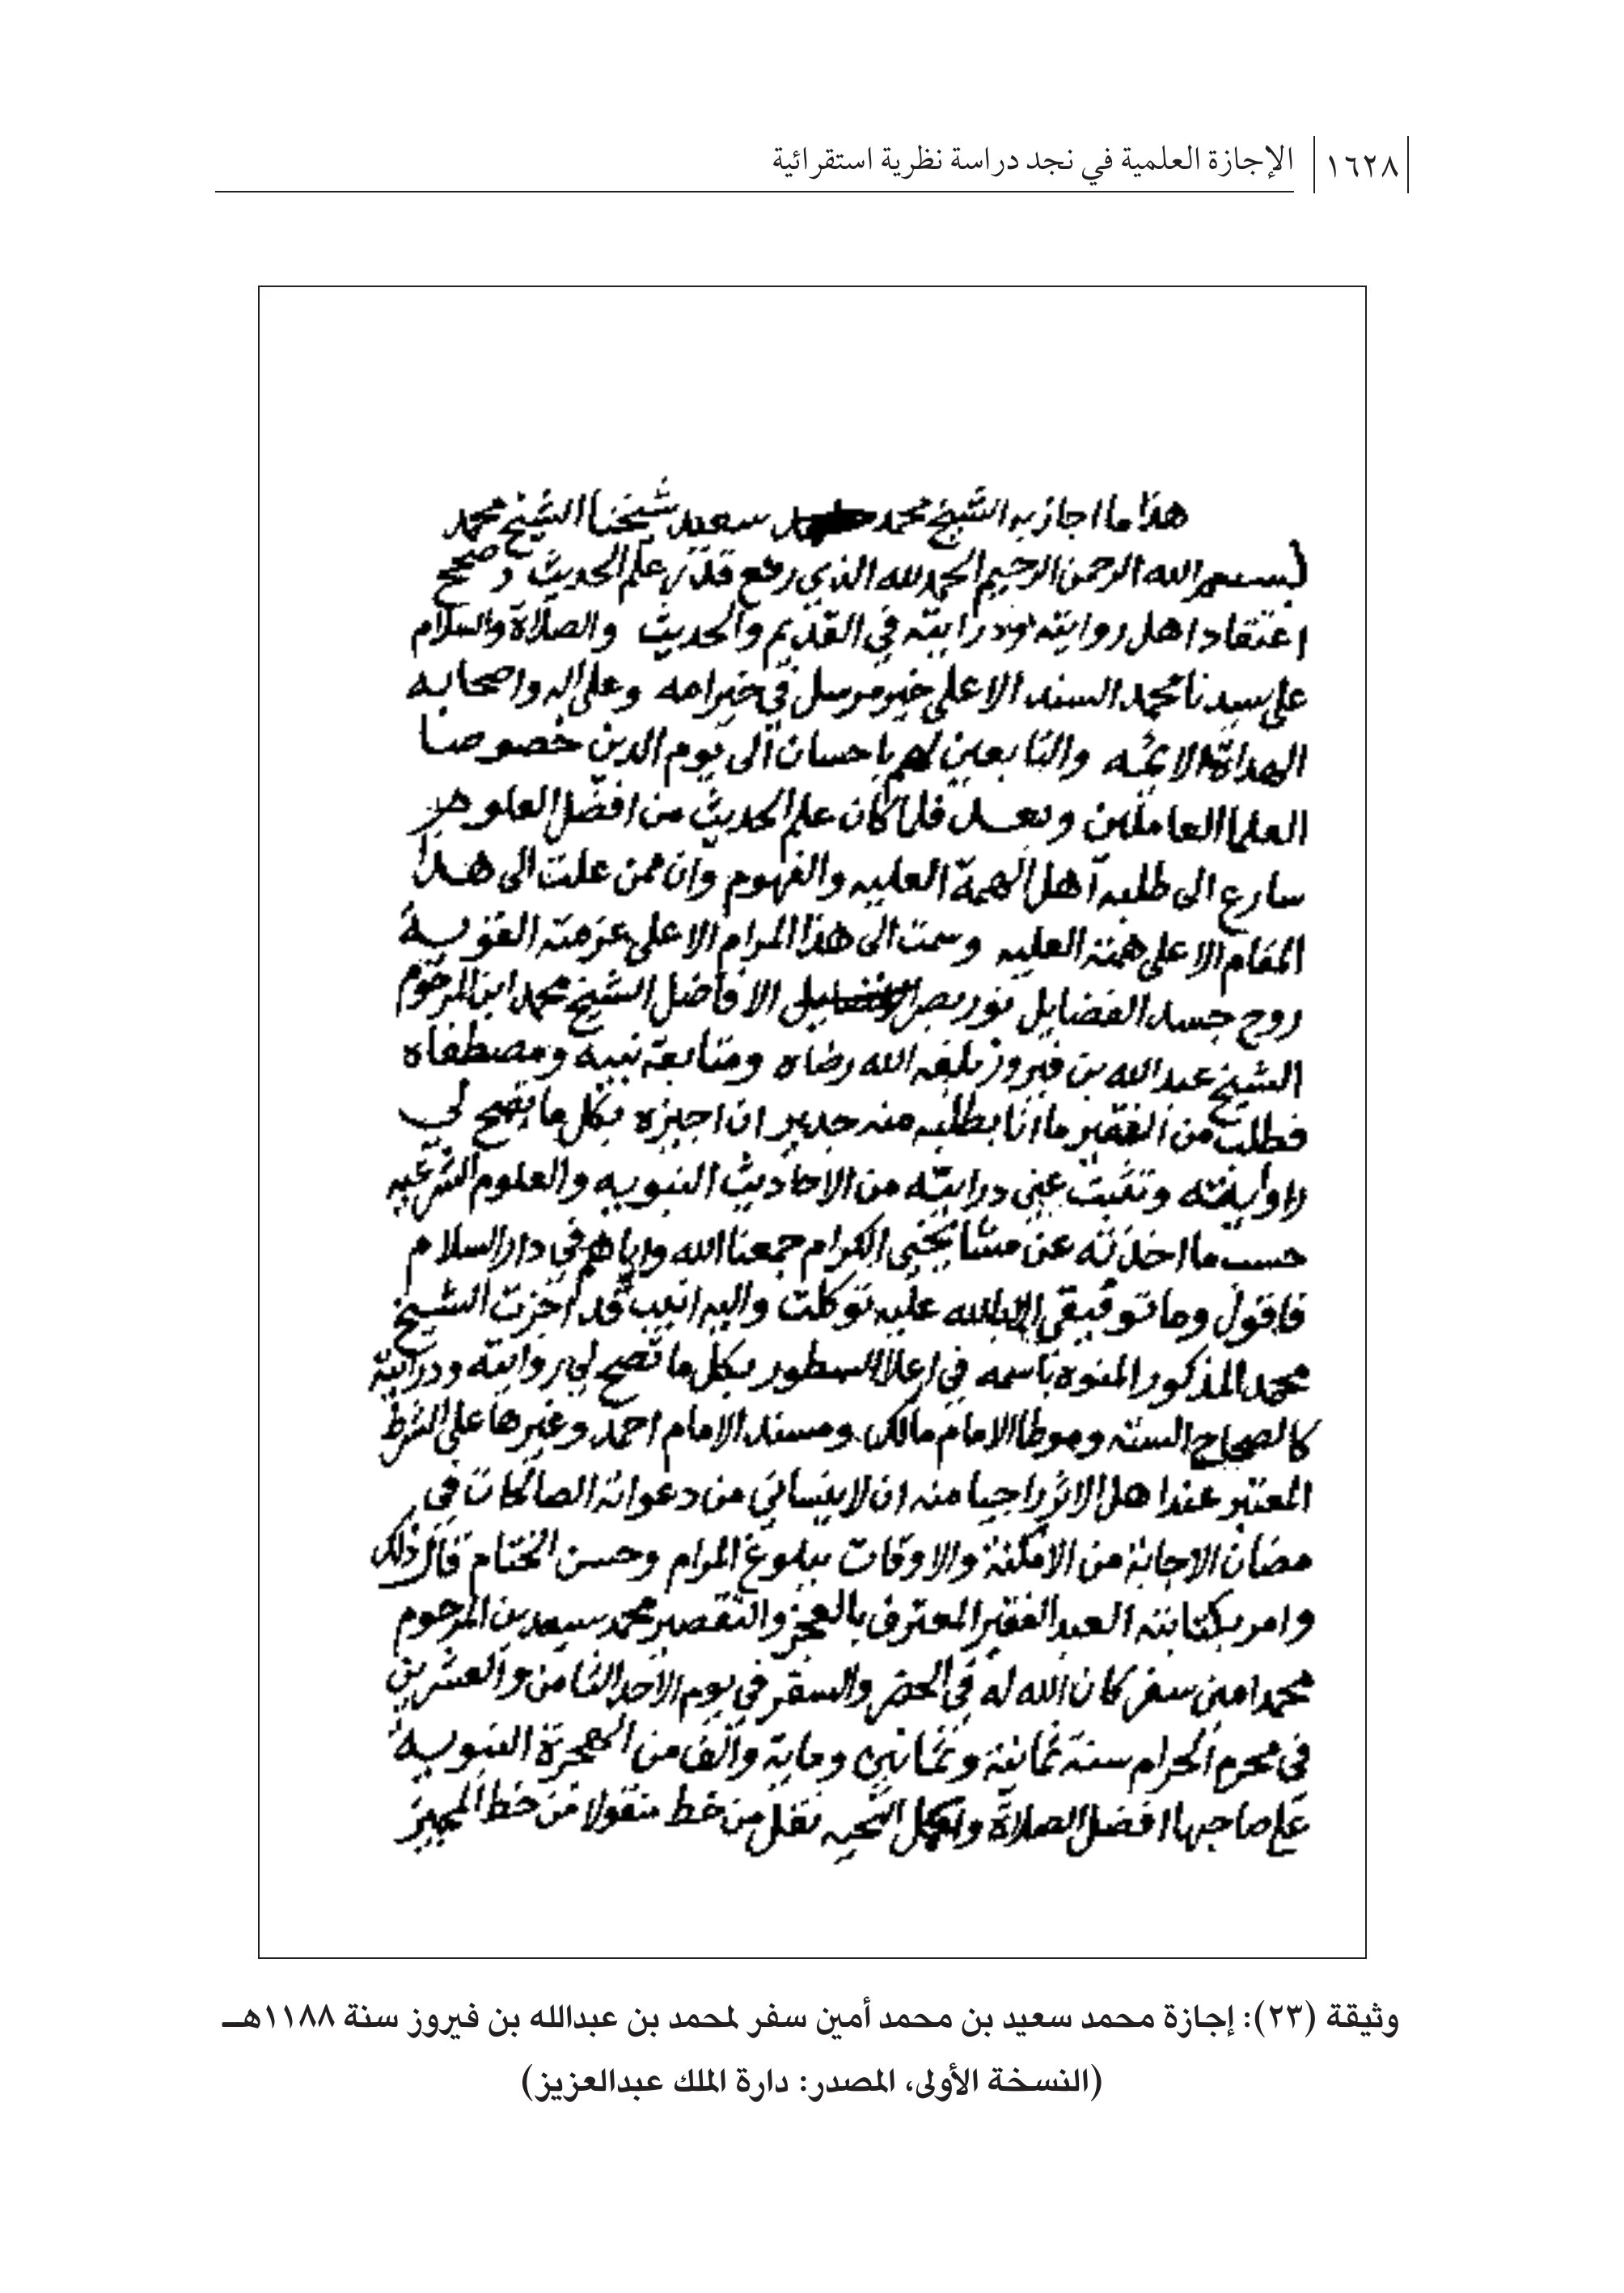 ١٦٢٨
الإجازة العلمية في نجد دراسة نظرية استقرائية
هذا ما اجاز به الشيخ محمد سعيد شيخنا الشيخ محمد
بسم الله الرحمن الرحيم الحمد لله الذي رفع قدر علم الحديث وصحح
اعتقاد اهل روايته ودرايته في القديم والحديث والصلاة والسلام
على سيدنا محمد السند الاعلى خير مرسل في خير امه وعلى اله واصحابه
الهداة الائمه والتابعين لهم باحسان الى يوم الدين خصوصا
العلما العاملين وبعد فلما كان علم الحديث من افضل العلوم
سارع الى طلبه اهل الهمة العليه والفهوم وان ممن علت الى هذا
المقام الاعلى همته العليه وسمت الى هذا المرام الاعلى عزمته القويه
روح جسد الفضايل نور بصر الافاضل الشيخ محمد ابن المرحوم
الشيخ عبد الله بن فيروز بلغه الله رضاه ومتابعة نبيه ومصطفاه
فطلب من الفقير ما انا بطلبه منه جدير ان اجيزه بكل ما يصح لي
روايته وتثبت عني درايته من الاحاديث النبويه والعلوم الشرعيه
حسب ما اخذته عن مشايخي الكرام جمعنا الله واياهم في دار السلام
فاقول وما توفيقي الا بالله عليه توكلت واليه انيب قد اجزت الشيخ
محمد المذكور المنوه باسمه في اعلا السطور بكل ما تصح لي روايته ودرايته
كالصحاح الستة وموطا الامام مالك ومسند الامام احمد وغيرها على الشرط
المعتبر عند اهل الاثر راجيا منه ان لا ينساني من دعواته الصالحات في
مضان الاجابة من الامكنة والاوقات ببلوغ المرام وحسن الختام قال ذلك
وامر بكتابته العبد الفقير المعترف بالعجز والتقصير محمد سعيد بن المرحوم
محمد امين سفر كان الله له في الحضر والسفر في يوم الاحد الثامن والعشرين
في محرم الحرام سنة ثمانية وثمانين وماية والف من الهجرة النبوية
على صاحبها افضل الصلاة واكمل التحيه نقل من خط منقولا من خط المجيز
وثيقة (٢٣): إجازة محمد سعيد بن محمد أمين سفر لمحمد بن عبدالله بن فيروز سنة ١١٨٨هـ
(النسخة الأولى، المصدر: دارة الملك عبدالعزيز)